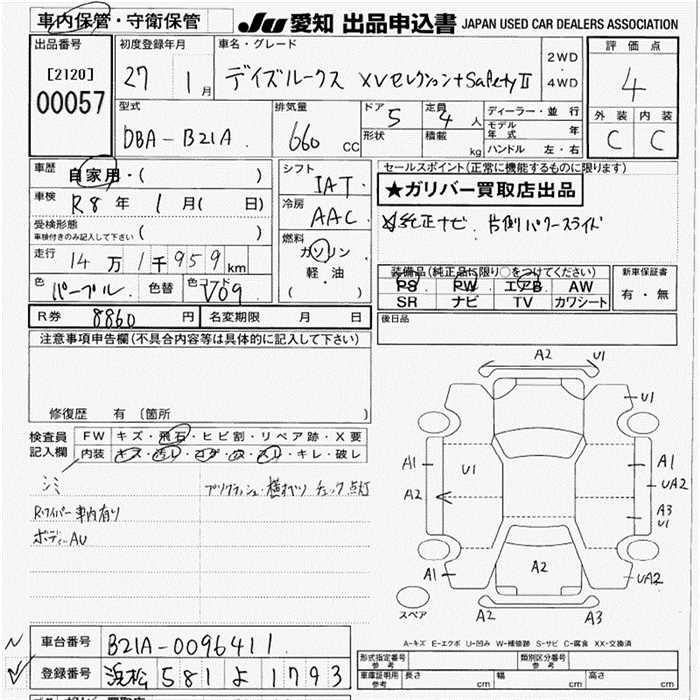 車内保管・守衛保管 JU 愛知 出品申込書 JAPAN USED CAR DEALERS ASSOCIATION
出品番号 初度登録年月 車名・グレード 評価点
[2120] 27 1月 デイズルークス XVセレクション+SafetyⅡ 2WD 4WD 4
00057
型式 排気量 ドア 5 定員 4人 ディーラー・並行 外装 内装
DBA-B21A 660cc 形状 積載 kg モデル年式 年 C C
ハンドル 左・右
車歴 自家用・( ) シフト IAT セールスポイント(正常に機能するものに限ります)
車検 R8年 1月( 日) 冷房 AAC ★ガリバー買取店出品
受検形態 車検付きのみ記入して下さい ( ) 燃料 純正ナビ 片側パワースライド
走行 14万1千959km ガソリン
軽・油
( )
色 パープル 色替 色コード V09
装備品(純正品に限り○をつけてください) 新車保証書
PS PW エアB AW 有・無
SR ナビ TV カワシート
R券 8860円 名変期限 月 日 後日品
注意事項申告欄(不具合内容等は具体的に記入して下さい)
修復歴 有(箇所 )
検査員 FW キズ・飛石・ヒビ割・リペア跡・X要
記入欄 内装 キズ・汚レ・コゲ・穴・スレ・キレ・破レ
シミ プリクラッシュ・横すべり チェック点灯
Rワイパー車内有り
ボディーAU
A2 U1
U1
A1 U1 A1
A2 UA2
A3
U1
A1 A2 UA2
スペア A2 A3
A-キズ E-エクボ U-凹み W-補修跡 S-サビ C-腐食 XX-交換済
車台番号 B21A-0096411
登録番号 浜松 581 よ 1793
形式指定番号 参考 類別区分番号 参考
車庫証明用 参考 長さ cm 幅 cm 高さ cm